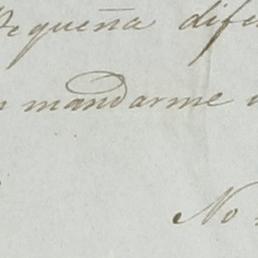 Pequeña dife
mandarme
No